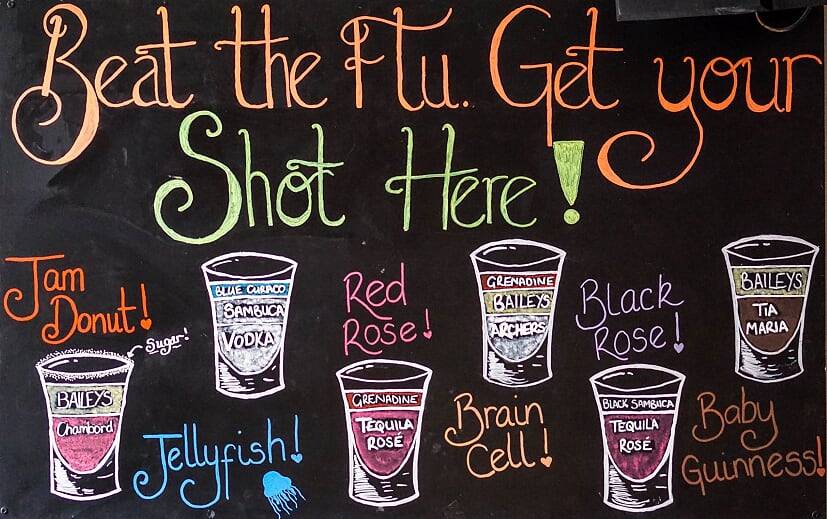 Beat the Flu. Get your
Shot Here!
Jam
Donut!
Sugar!
BAILEYS
Chambord
BLUE CURACO
SAMBUCA
VODKA
Jellyfish!
Red
Rose!
GRENADINE
TEQUILA
ROSÉ
GRENADINE
BAILEYS
ARCHERS
Brain
Cell!
Black
Rose!
BLACK SAMBUCA
TEQUILA
ROSÉ
BAILEYS
TIA
MARIA
Baby
Guinness!